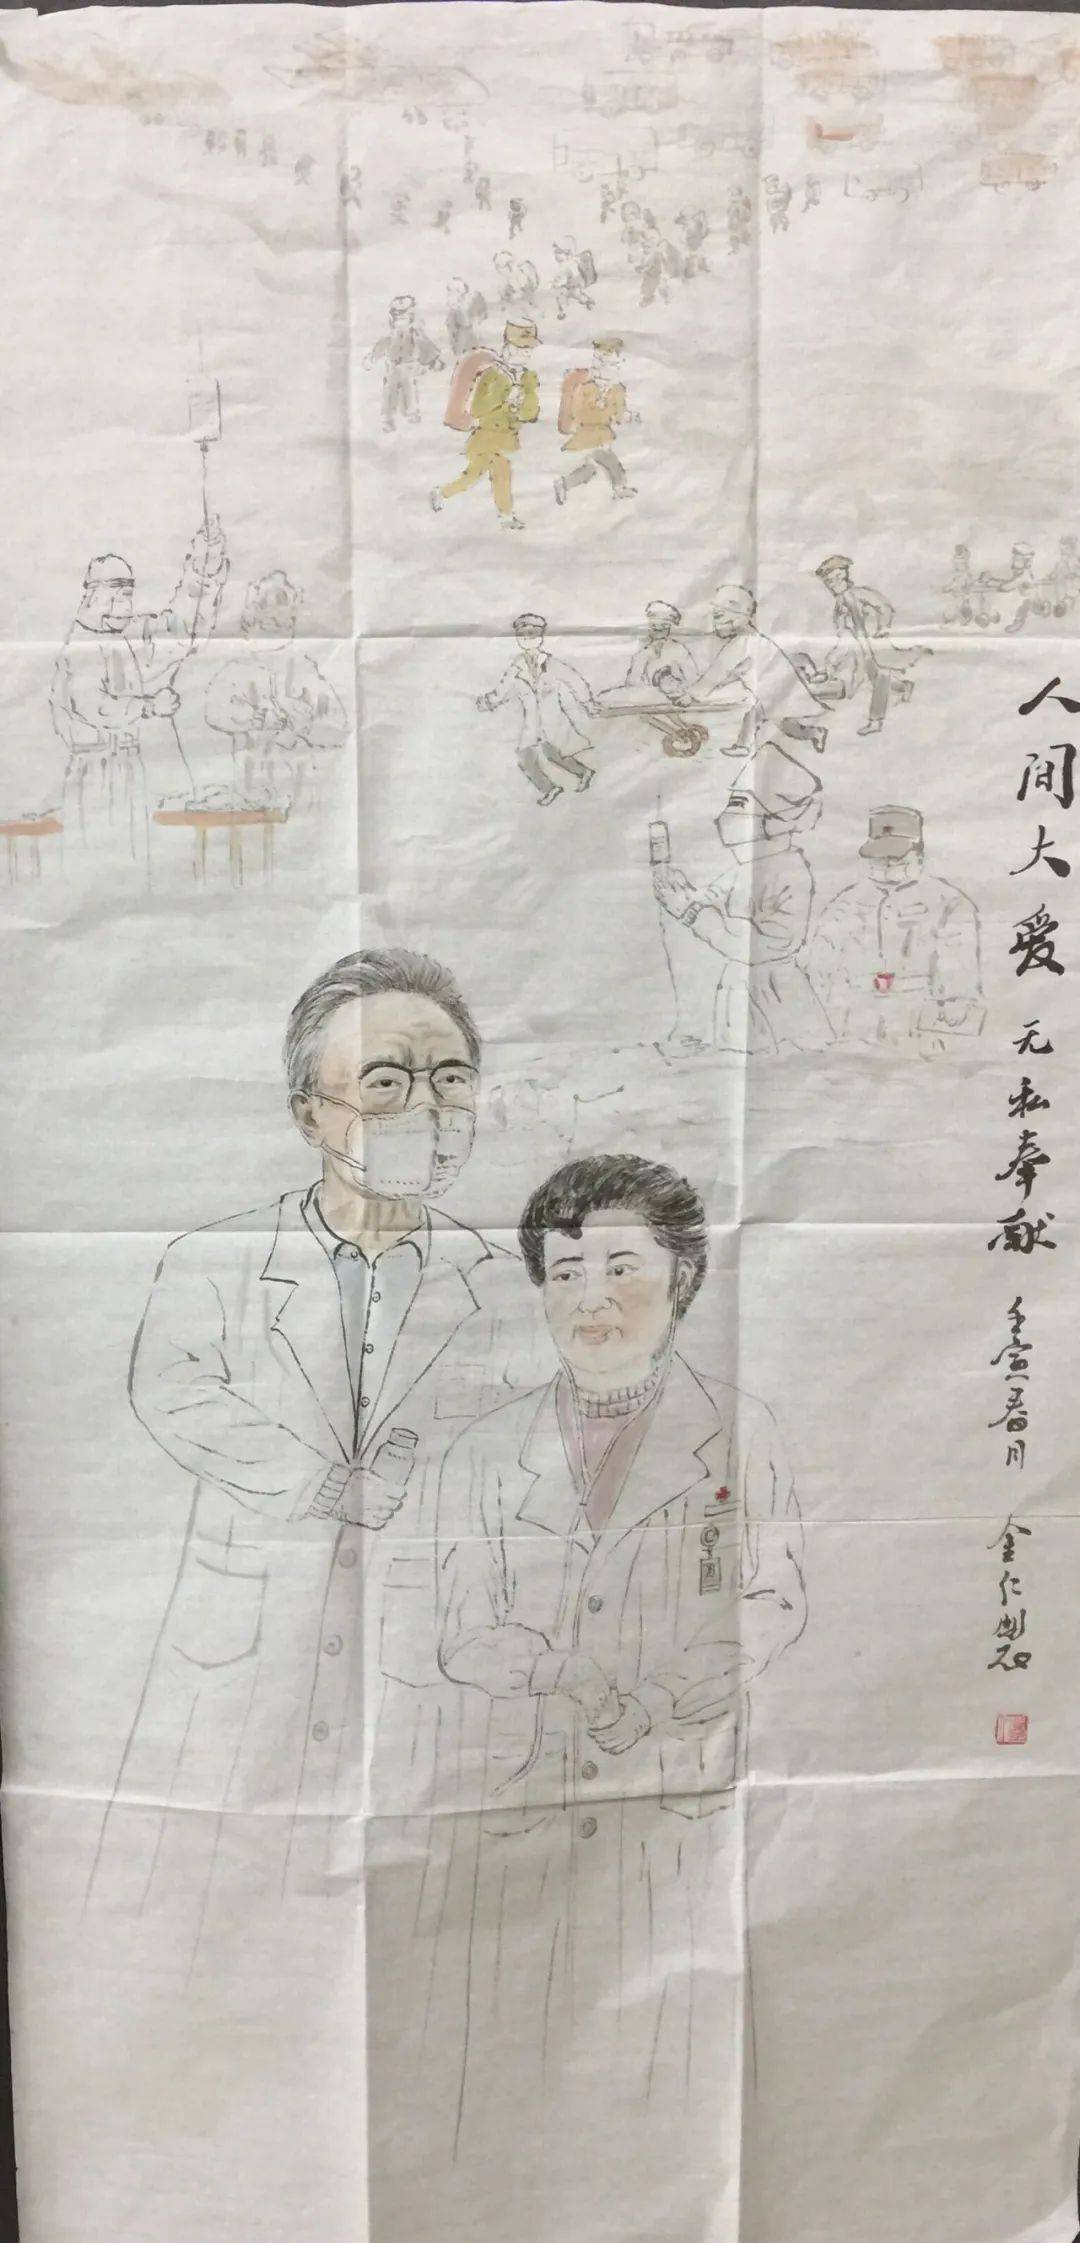 人间大爱 无私奉献 壬寅春月 金仁